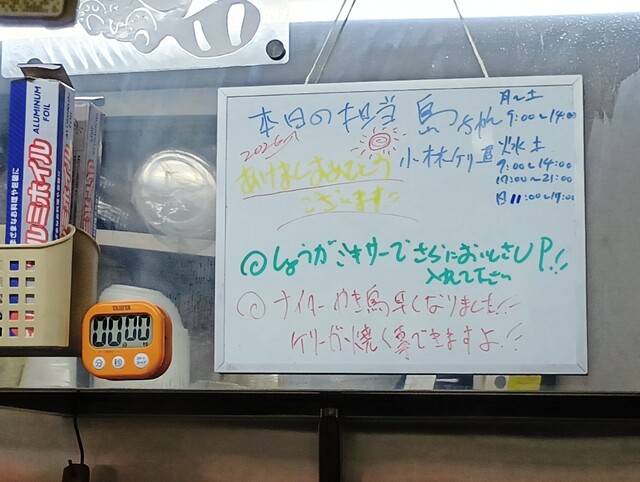 本日の担当 島ちゃん 月〜土 9:00〜14:00
2026.1
小林ケリ 火水土
9:00〜14:00
17:00〜21:00
日 11:00〜17:00
あけましておめでとう
ございます
◎しょうがミキサーでさらにおいしさUP!!
入れて下さい
◎ナイターやき鳥早くなりました!!
ケリーが焼く事できますよ!!
ALUMINUM FOIL
ルミホイル
さまざまなお料理や包装に
TANITA
00:00
分
秒